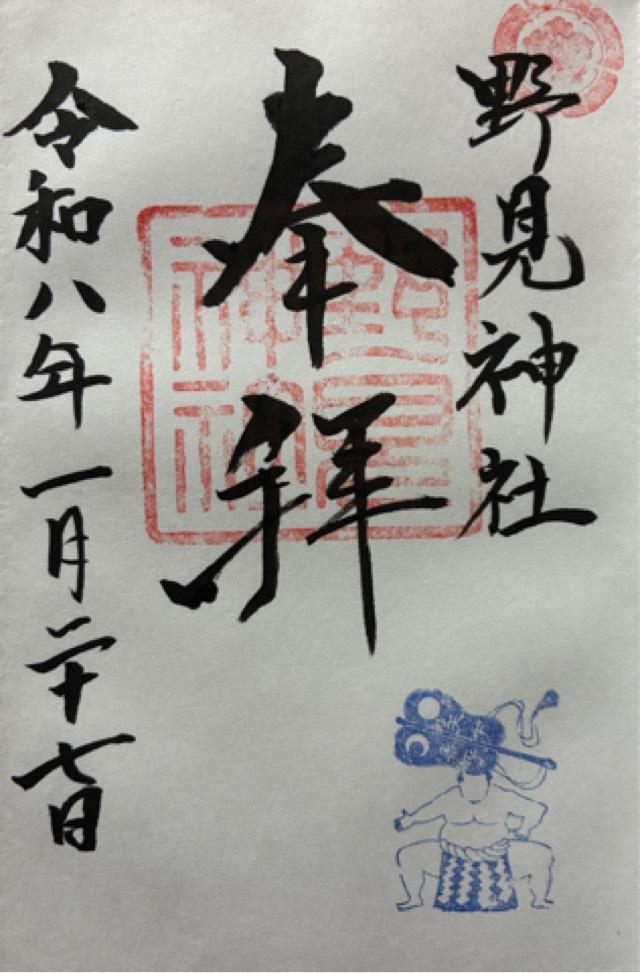 野見神社
奉拝
野見
神社
令和八年一月二十七日